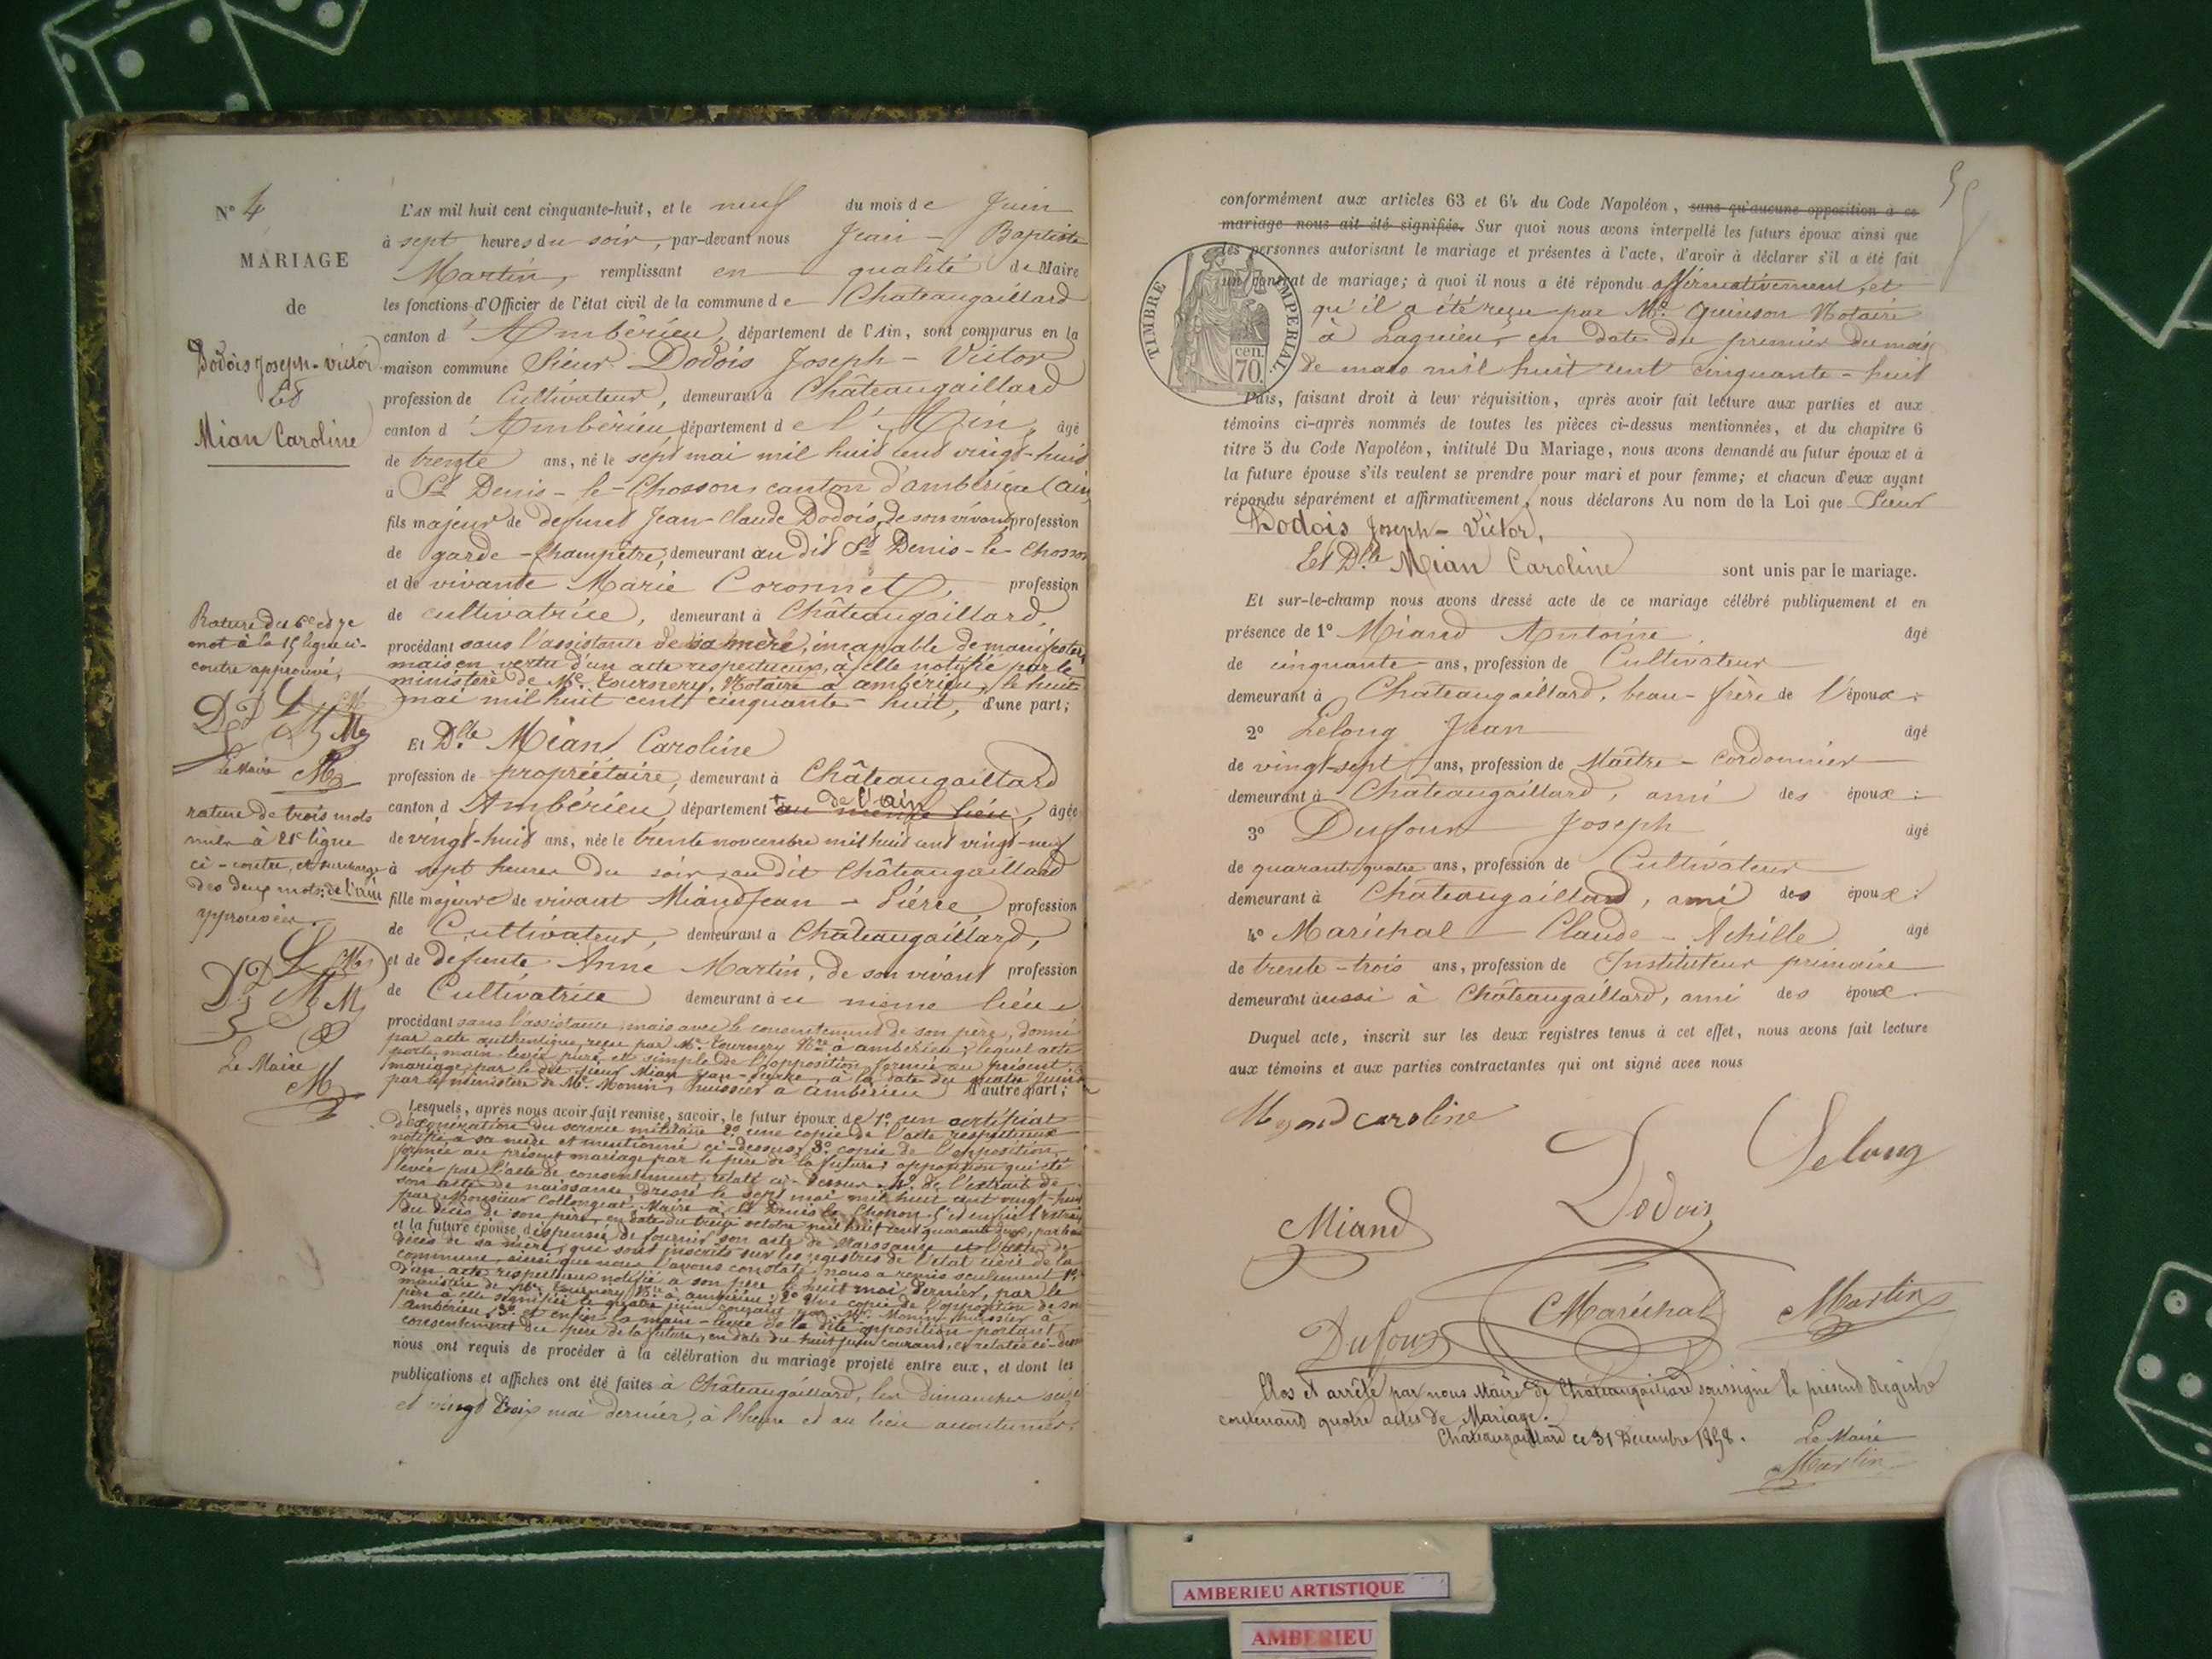 N° 4
MARIAGE
de
Dodois Joseph-victor
Et
Mian Caroline
Rature du 6e et 7e
mot à la 15 ligne ci-
contre approuvé,
Le Maire
rature de trois mots
à 21e ligne
ci-contre, et surcharge
des deux mots: de l'ain
approuvées.
Le Maire
L'AN mil huit cent cinquante-huit, et le neuf du mois de Juin
à sept heures du soir, par-devant nous Jean-Baptiste
Martin, remplissant en qualité de Maire
les fonctions d'Officier de l'état civil de la commune de Chateaugaillard
canton d'Ambérieu, département de l'Ain, sont comparus en la
maison commune Sieur Dodois Joseph-Victor
profession de Cultivateur, demeurant à Châteaugaillard
canton d'Ambérieu département de l'Ain, âgé
de trente ans, né le sept mai mil huit cent vingt-huit
à St Denis-le-Chosson, canton d'ambérieu (ain
fils majeur de defunt Jean-Claude Dodois, de son vivant profession
de garde-champêtre, demeurant au dit St Denis-le-Chosson
et de vivante Marie Coronnet, profession
de cultivatrice, demeurant à Châteaugaillard,
procédant sans l'assistance de sa mère, incapable de manifester,
mais en vertu d'un acte respectueux, à elle notifié par le
ministère de Me Tournery, Notaire à ambérieu, le huit
mai mil huit cent cinquante-huit, d'une part;
Et Dlle Mian Caroline
profession de propriétaire, demeurant à Châteaugaillard
canton d'Ambérieu, département au même lieu de l'ain, âgée
de vingt-huit ans, née le trente novembre mil huit cent vingt-neuf
à sept heures du soir, au dit Châteaugaillard
fille majeure de vivant Miand Jean-Pierre profession
de Cultivateur, demeurant à Châteaugaillard,
et de defunte Anne Martin, de son vivant profession
de Cultivatrice demeurant au même lieu
procédant sans l'assistance, mais avec le consentement de son père, donné
par acte authentique, reçu par Me Tournery Nre à ambérieu; lequel acte
porte main-levée pure et simple de l'opposition formée au présent
mariage, par le dit sieur Mian Jean-Pierre, à la date du quatre Juin
par le ministère de Me Monin, huissier à ambérieu d'autre part;
Lesquels, après nous avoir fait remise, savoir, le futur époux de 1° un certificat
d'exonération du service militaire 2° une copie de l'acte respectueux
notifié à sa mère et mentionné ci-dessus; 3° copie de l'opposition
formée au présent mariage par le père de la future; opposition qui été
levée par l'acte de consentement relaté ci-dessus. 4° de l'extrait de
son acte de naissance, dressé le sept mai mil huit cent vingt-huit
par Monsieur Collongeat, Maire à St Denis le Chosson, et enfin l'extrait
du décès de son père, en date du treize octobre mil huit cent quarante deux,
et la future épouse, dispensée de fournir son acte de Naissance et l'acte de
décès de sa mère, qui sont inscrits sur les registres de l'état civil de la
commune, ainsi que nous l'avons constaté, nous a remis seulement 1°
d'un acte respectueux notifié à son père le huit mai dernier, par le
ministère de Me Tournery Nre à ambérieu; 2° Une copie de l'opposition de son
père à elle signifiée le quatre juin courant par Me Monin, huissier à
ambérieu, 3° et enfin la main-levée de la dite opposition portant
consentement du père de la future, en date du huit juin courant, et relatée ci-dessus
nous ont requis de procéder à la célébration du mariage projeté entre eux, et dont les
publications et affiches ont été faites à Châteaugaillard, les dimanches seize
et vingt trois mai dernier, à l'heure et au lieu accoutumés.
conformément aux articles 63 et 64 du Code Napoléon, sans qu'aucune opposition à ce
mariage nous ait été signifiée. Sur quoi nous avons interpellé les futurs époux ainsi que
les personnes autorisant le mariage et présentes à l'acte, d'avoir à déclarer s'il a été fait
un contrat de mariage; à quoi il nous a été répondu affirmativement, et
qu'il a été reçu par Me Quinson Notaire
à Lagnieu, en date du premier du mois
de mars mil huit cent cinquante-huit
TIMBRE IMPERIAL.
70 cen.
Puis, faisant droit à leur réquisition, après avoir fait lecture aux parties et aux
témoins ci-après nommés de toutes les pièces ci-dessus mentionnées, et du chapitre 6
titre 5 du Code Napoléon, intitulé Du Mariage, nous avons demandé au futur époux et à
la future épouse s'ils veulent se prendre pour mari et pour femme; et chacun d'eux ayant
répondu séparément et affirmativement, nous déclarons Au nom de la Loi que Sieur
Dodois Joseph-Victor,
Et Dlle Mian Caroline sont unis par le mariage.
Et sur-le-champ nous avons dressé acte de ce mariage célébré publiquement et en
présence de 1° Miand Antoine âgé
de cinquante ans, profession de Cultivateur
demeurant à Châteaugaillard, beau-frère de l'époux;
2° Lelong Jean âgé
de vingt-sept ans, profession de Maître-Cordonnier
demeurant à Châteaugaillard, ami des époux;
3° Dufour Joseph âgé
de quarante-quatre ans, profession de Cultivateur
demeurant à Châteaugaillard, ami des époux;
4° Maréchal Claude-Achille âgé
de trente-trois ans, profession de Instituteur primaire
demeurant aussi à Châteaugaillard, ami des époux.
Duquel acte, inscrit sur les deux registres tenus à cet effet, nous avons fait lecture
aux témoins et aux parties contractantes qui ont signé avec nous
Myand caroline
Lelong
Dodois
Miand
Dufour
Maréchal
Martin
Clos et arrêté par nous Maire de Châteaugaillard soussigné le présent Registre
contenant quatre actes de Mariage.
Châteaugaillard ce 31 Décembre 1858.
Le Maire
Martin
AMBERIEU ARTISTIQUE
AMBERIEU